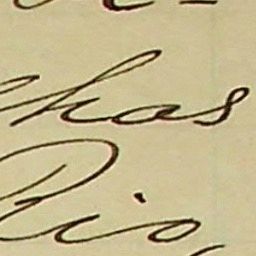 has
Rio,